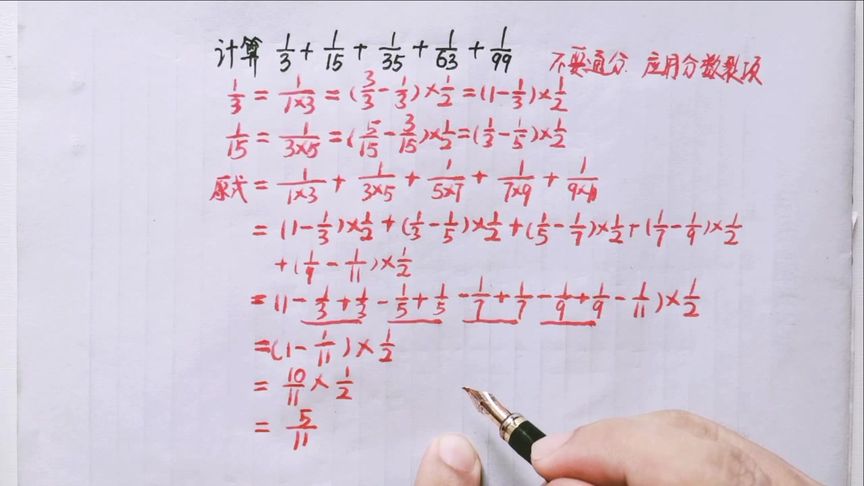 计算 1/3 + 1/15 + 1/35 + 1/63 + 1/99
不要通分 应用分数裂项
1/3 = 1/(1×3) = (3/3 - 1/3) × 1/2 = (1 - 1/3) × 1/2
1/15 = 1/(3×5) = (5/15 - 3/15) × 1/2 = (1/3 - 1/5) × 1/2
原式 = 1/(1×3) + 1/(3×5) + 1/(5×7) + 1/(7×9) + 1/(9×11)
= (1 - 1/3) × 1/2 + (1/3 - 1/5) × 1/2 + (1/5 - 1/7) × 1/2 + (1/7 - 1/9) × 1/2
+ (1/9 - 1/11) × 1/2
= (1 - 1/3 + 1/3 - 1/5 + 1/5 - 1/7 + 1/7 - 1/9 + 1/9 - 1/11) × 1/2
= (1 - 1/11) × 1/2
= 10/11 × 1/2
= 5/11